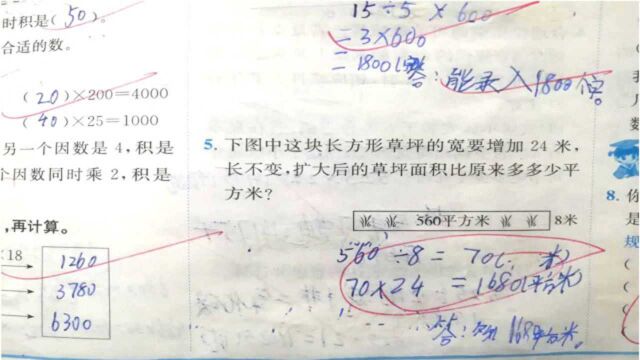 时积是(50)。
合适的数。
(20)×200=4000
(40)×25=1000
另一个因数是 4,积是
个因数同时乘 2,积是
,再计算。
×18
1260
3780
6300
15÷5×600
=3×600
=1800(字)
答:能录入1800个。
5. 下图中这块长方形草坪的宽要增加 24 米,
长不变,扩大后的草坪面积比原来多多少平
方米?
560平方米 8米
560÷8=70(米)
70×24=1680(平方米)
答:
8. 你
是
规